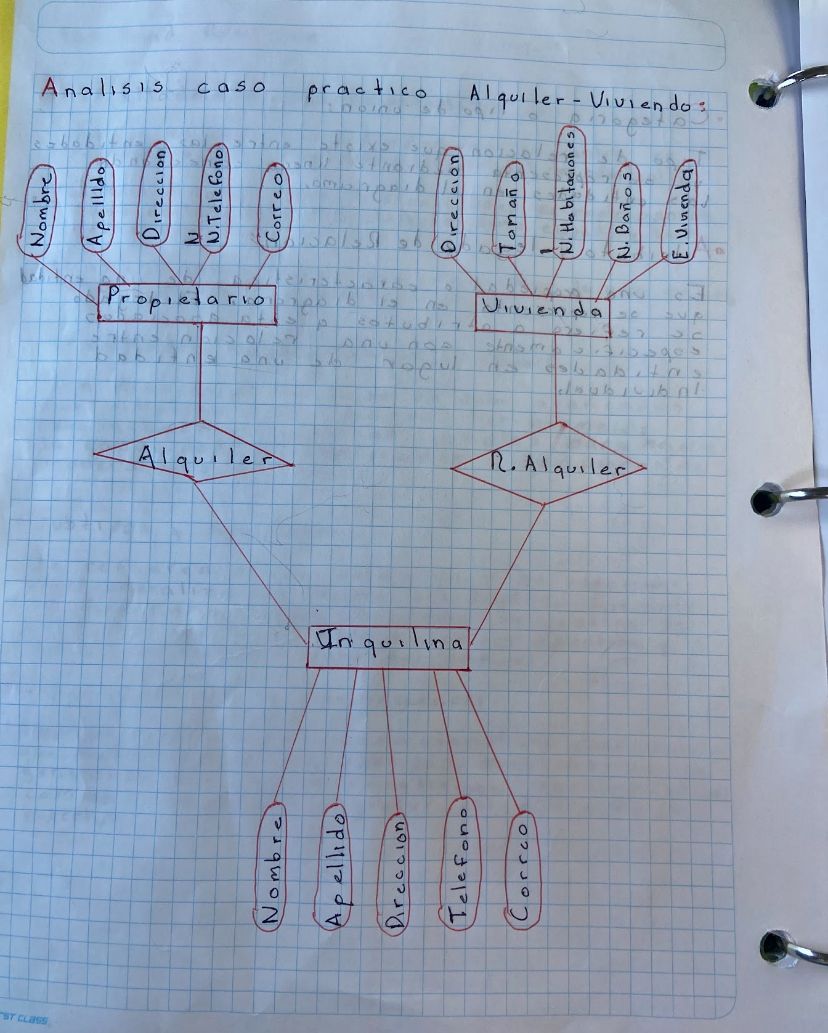 Analisis caso practico Alquiler-Vivienda:
Nombre
Apellido
Direccion
N
N.Telefono
Correo
Direccion
Tomaño
N.Habitaciones
N.Baños
E.Vivienda
Propietario
Vivienda
Alquiler
R.Alquiler
Inquilina
Nombre
Apellido
Direccion
Telefono
Correo
ST CLASS